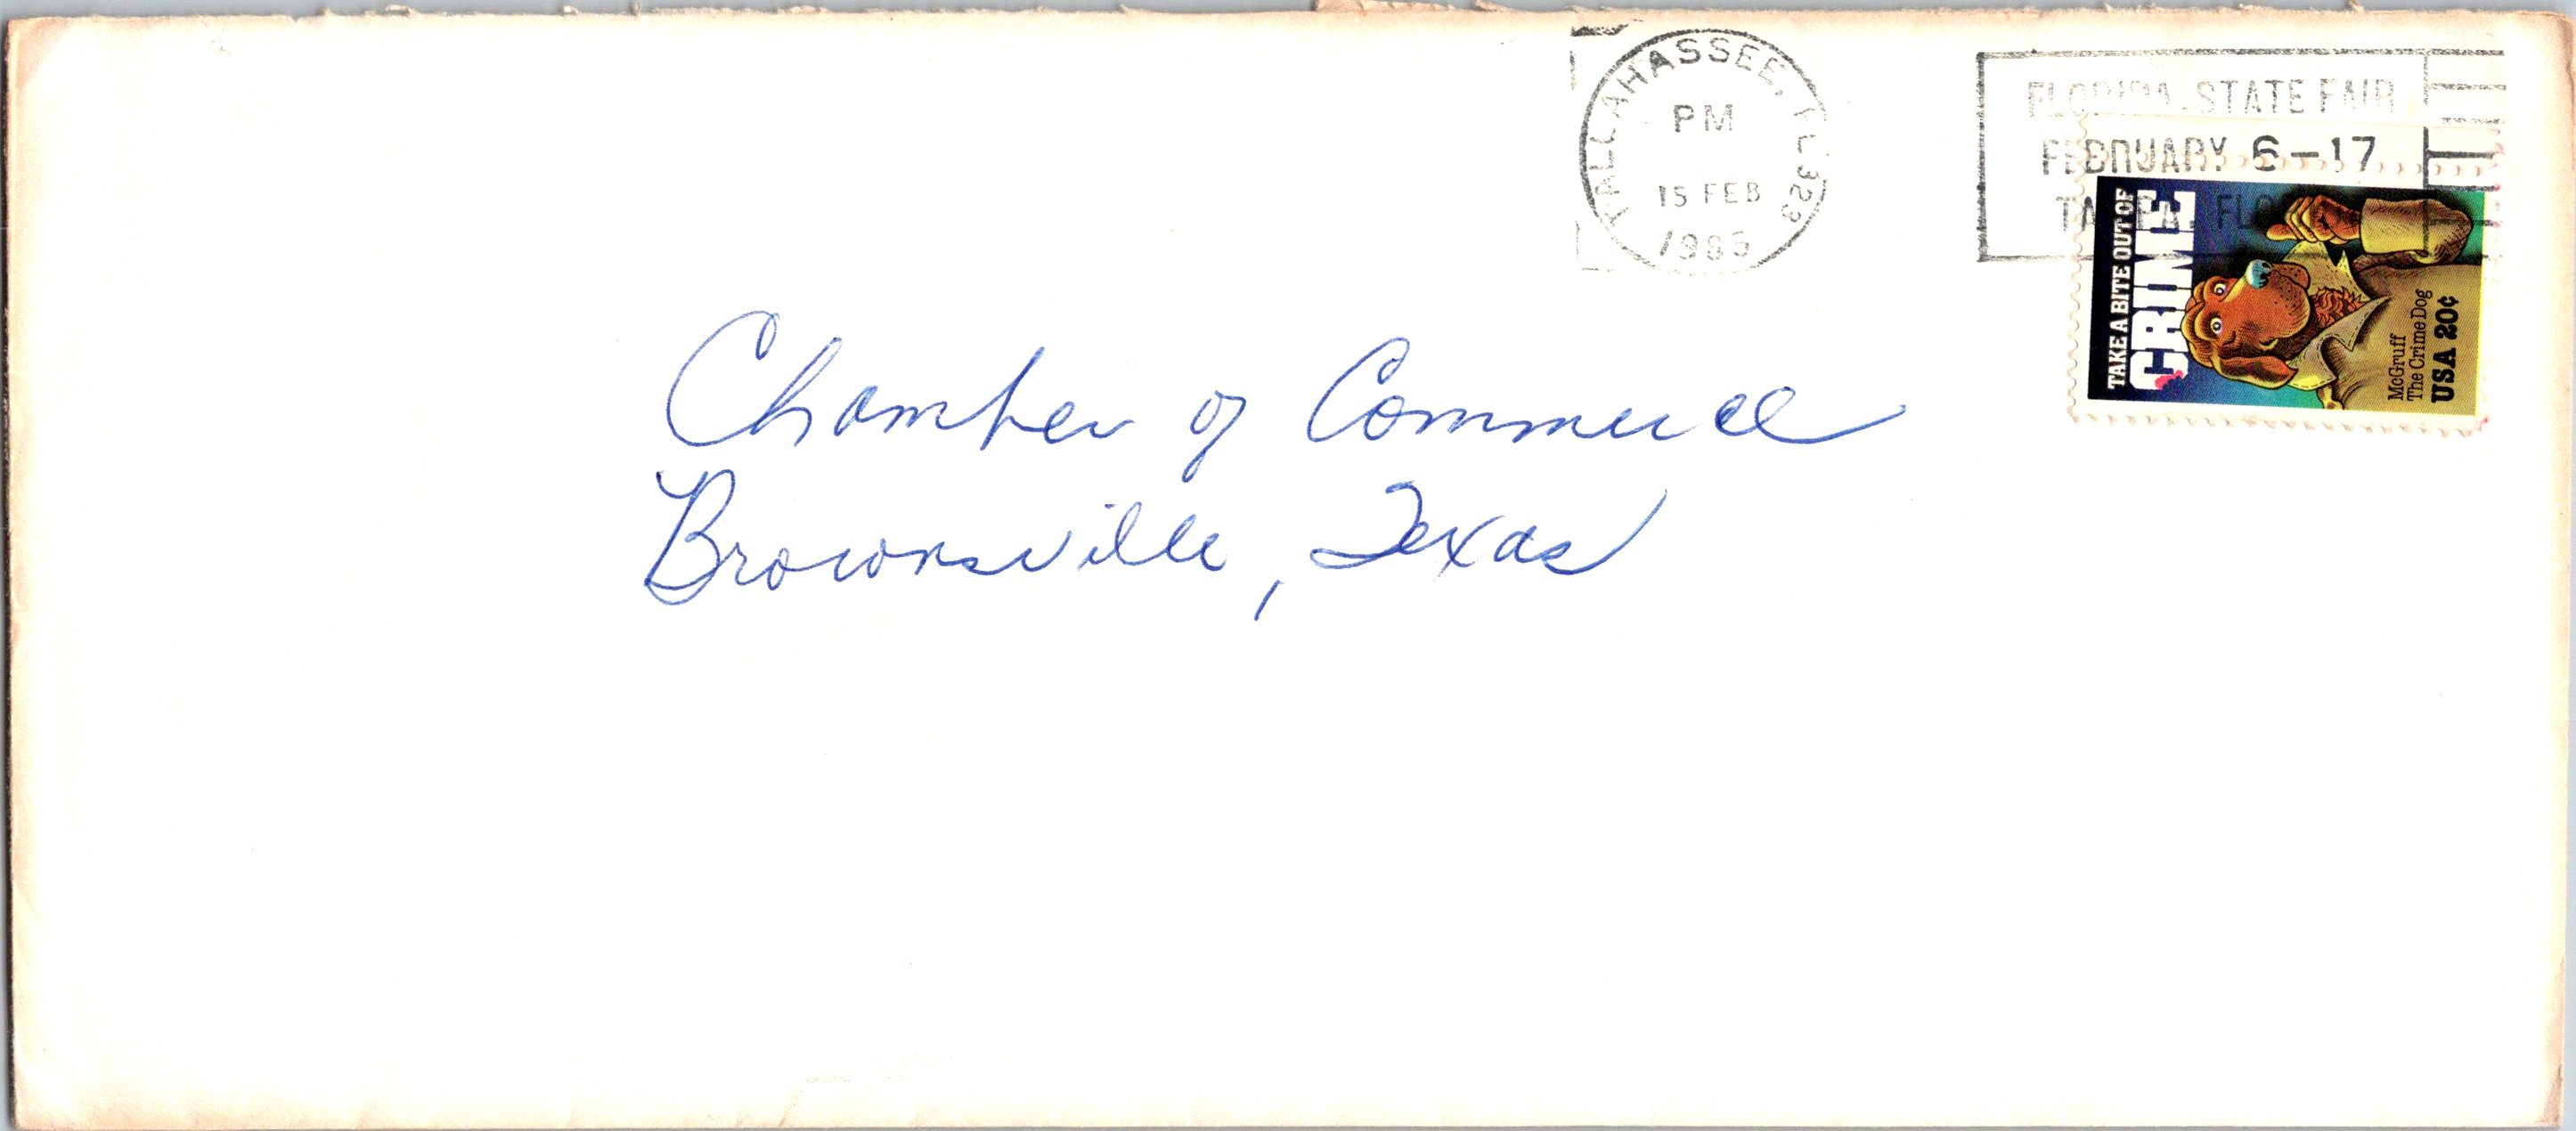 TALLAHASSEE, FL 323
PM
15 FEB
1985
FLORIDA STATE FAIR
FEBRUARY 6-17
TAMPA, FLO
TAKE A BITE OUT OF
CRIME
McGruff
The Crime Dog
USA 20¢
Chamber of Commerce
Brownsville, Texas